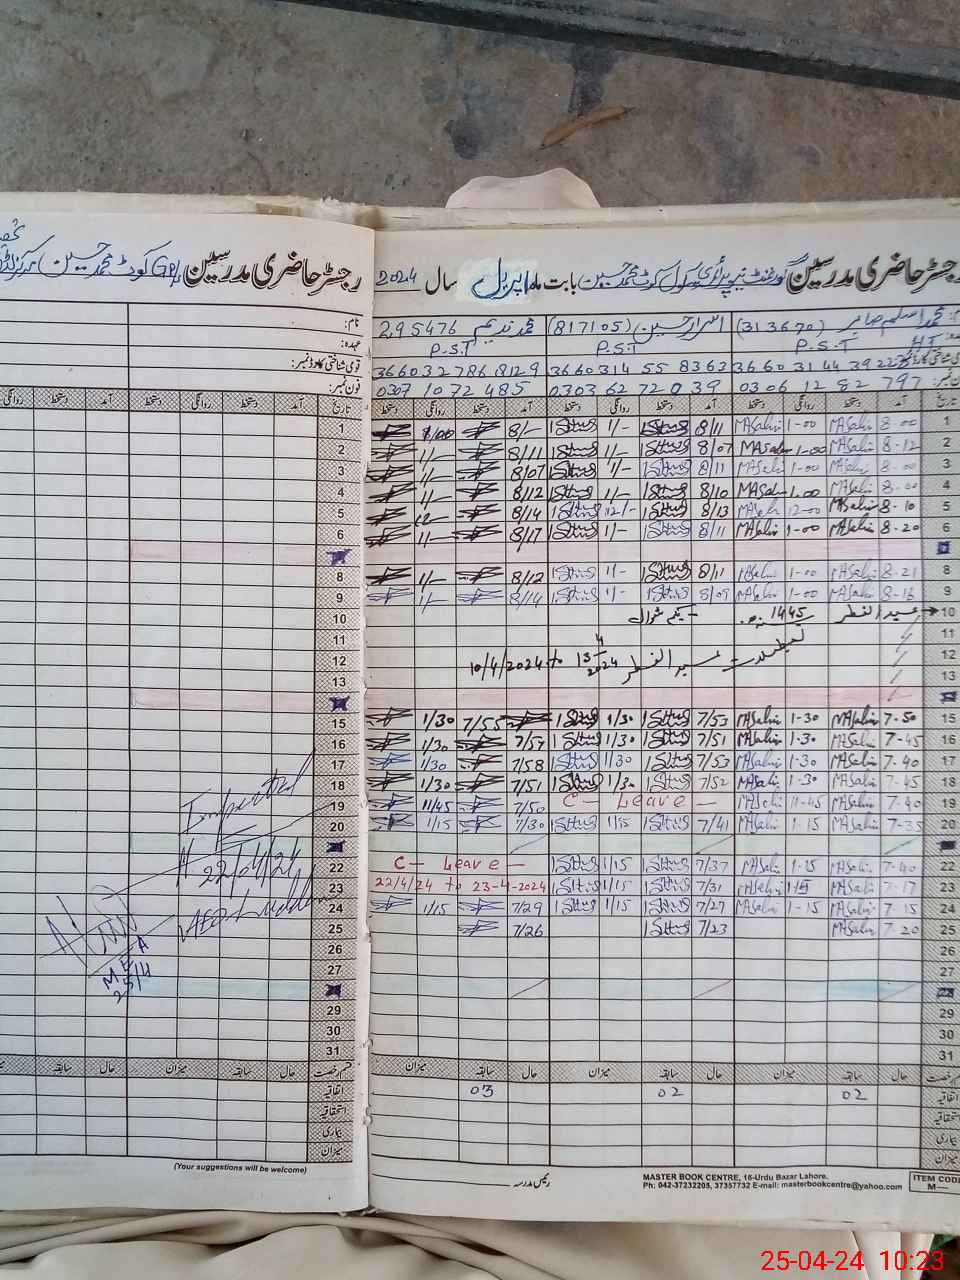 رجسٹر حاضری مدرسین گورنمنٹ نیو پرائمری سکول کوٹ محمد حسین بابت ماہ اپریل سال 2024
محمد اسلم صابر (313670) اسرار حسین (817105) محمد ندیم 295476
HT P.S.T P.S.T P.S.T
قومی شناختی کارڈ نمبر: 36603 14 55 8363 366032786 8129
فون نمبر: 0306 12 82 797 0303 62 72 0 39 0307 10 72 485
تاریخ آمد دستخط روانگی دستخط آمد دستخط روانگی دستخط آمد دستخط روانگی دستخط
1 8-00 MASabir 1-00 MASabir 8/11 1/- 8/-
2 8-12 MASabir 1-00 MASabir 8/07 1/- 8/11 1/-
3 8-00 MASabir 1-00 MASabir 8/11 1/- 8/07 1/-
4 8-00 MASabir 1-00 MASabir 8/10 1/- 8/12 1/-
5 8-10 MASabir 12-00 MASabir 8/13 12/- 8/14 12/-
6 8-20 MASabir 1-00 MASabir 8/11 1/- 8/17 1/-
8 8-21 MASabir 1-00 MASabir 8/11 1/- 8/12 1/-
9 MASabir 1-00 MASabir 8/09 1/- 8/14 1/-
10 عید الفطر 1445 یکم شوال
11
12 تعطیلات عید الفطر 10/4/2024 to 13/4/2024
13
15 7-50 MASabir 1-30 MASabir 7/53 1/30 7/55 1/30
16 7-45 MASabir 1-30 MASabir 7/51 1/30 7/57 1/30
17 7-40 MASabir 1-30 MASabir 7/53 1/30 7/58 1/30
18 7-45 MASabir 1-30 MASabir 7/52 1/30 7/51 1/30
19 7-40 MASabir 11-45 MASabir C- Leave - 7/50 11/45
20 7-35 MASabir 1-15 MASabir 7/41 1/15 7/30 1/15
22 7-40 MASabir 1-15 MASabir 7/37 1/15 C- Leave -
23 7-17 MASabir MASabir 7/31 1/15 22/4/24 to 23-4-2024
24 7-15 MASabir 1-15 MASabir 7/27 1/15 7/29 1/15
25 7-20 MASabir 7/23 7/26
26
27
29
30
31
قسم رخصت حال سابقہ میزان حال سابقہ میزان حال سابقہ میزان
اتفاقیہ 02 02 03
استحقاقیہ
بیماری
میزان
رئیس مدرسہ
MASTER BOOK CENTRE, 16-Urdu Bazar Lahore,
Ph: 042-37232205, 37357732 E-mail: masterbookcentre@yahoo.com
ITEM CODE
M—
رجسٹر حاضری مدرسین GPS کوٹ محمد حسین مرکز
نام:
عہدہ:
قومی شناختی کارڈ نمبر:
فون نمبر:
تاریخ آمد دستخط روانگی دستخط آمد دستخط روانگی
1
2
3
4
5
6
8
9
10
11
12
13
15
16
17
18
19
20
22
23
24
25
26
27
29
30
31
Inspected
22/04/24
AEO Luddan
MEA
25/4
قسم رخصت حال سابقہ میزان حال سابقہ
اتفاقیہ
استحقاقیہ
بیماری
میزان
(Your suggestions will be welcome)
25-04-24 10:23